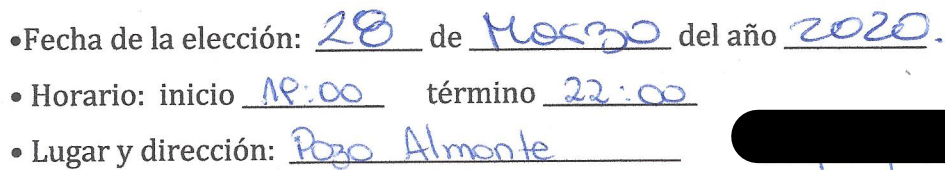 •Fecha de la elección: 28 de Marzo del año 2020.
• Horario: inicio 19:00 término 22:00
• Lugar y dirección: Pozo Almonte